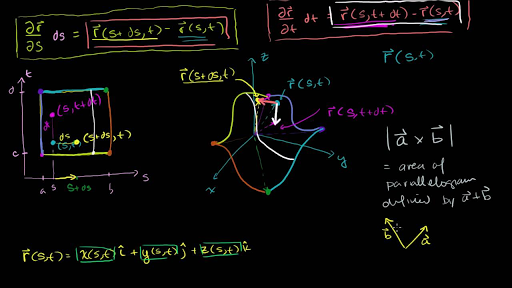 ∂r⃗/∂s ds = r⃗(s+ds,t) − r⃗(s,t)
∂r⃗/∂t dt = r⃗(s,t+dt) − r⃗(s,t)
r⃗(s,t)
t
d
(s,t+dt)
ds
(s+ds,t)
c
a s s+ds b s
z
r⃗(s+ds,t)
r⃗(s,t)
r⃗(s,t+dt)
x
y
|a⃗ × b⃗|
= area of
parallelogram
defined by a⃗+b⃗
b⃗ a⃗
r⃗(s,t) = x(s,t) î + y(s,t) ĵ + z(s,t) k̂